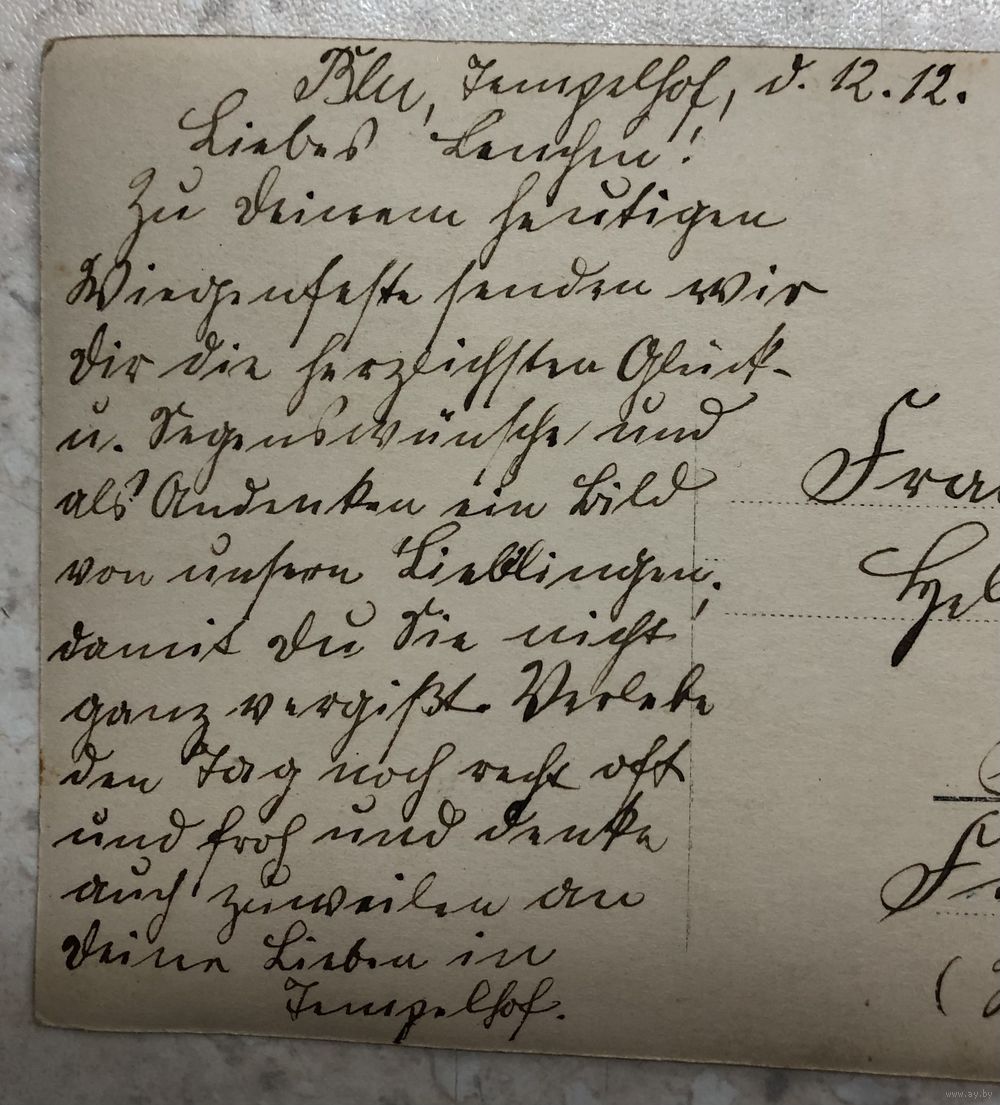 Bln, Tempelhof, d. 12.12.
Liebes Lenchen!
Zu Deinem heutigen
Wiegenfeste senden wir
Dir die herzlichsten Glück-
u. Segenswünsche und
als Andenken ein Bild
von unsern Lieblingen,
damit Du Sie nicht
ganz vergißt. Verlebe
den Tag noch recht oft
und froh und denke
auch zuweilen an
Deine Lieben in
Tempelhof.
Hel
www.ay.by